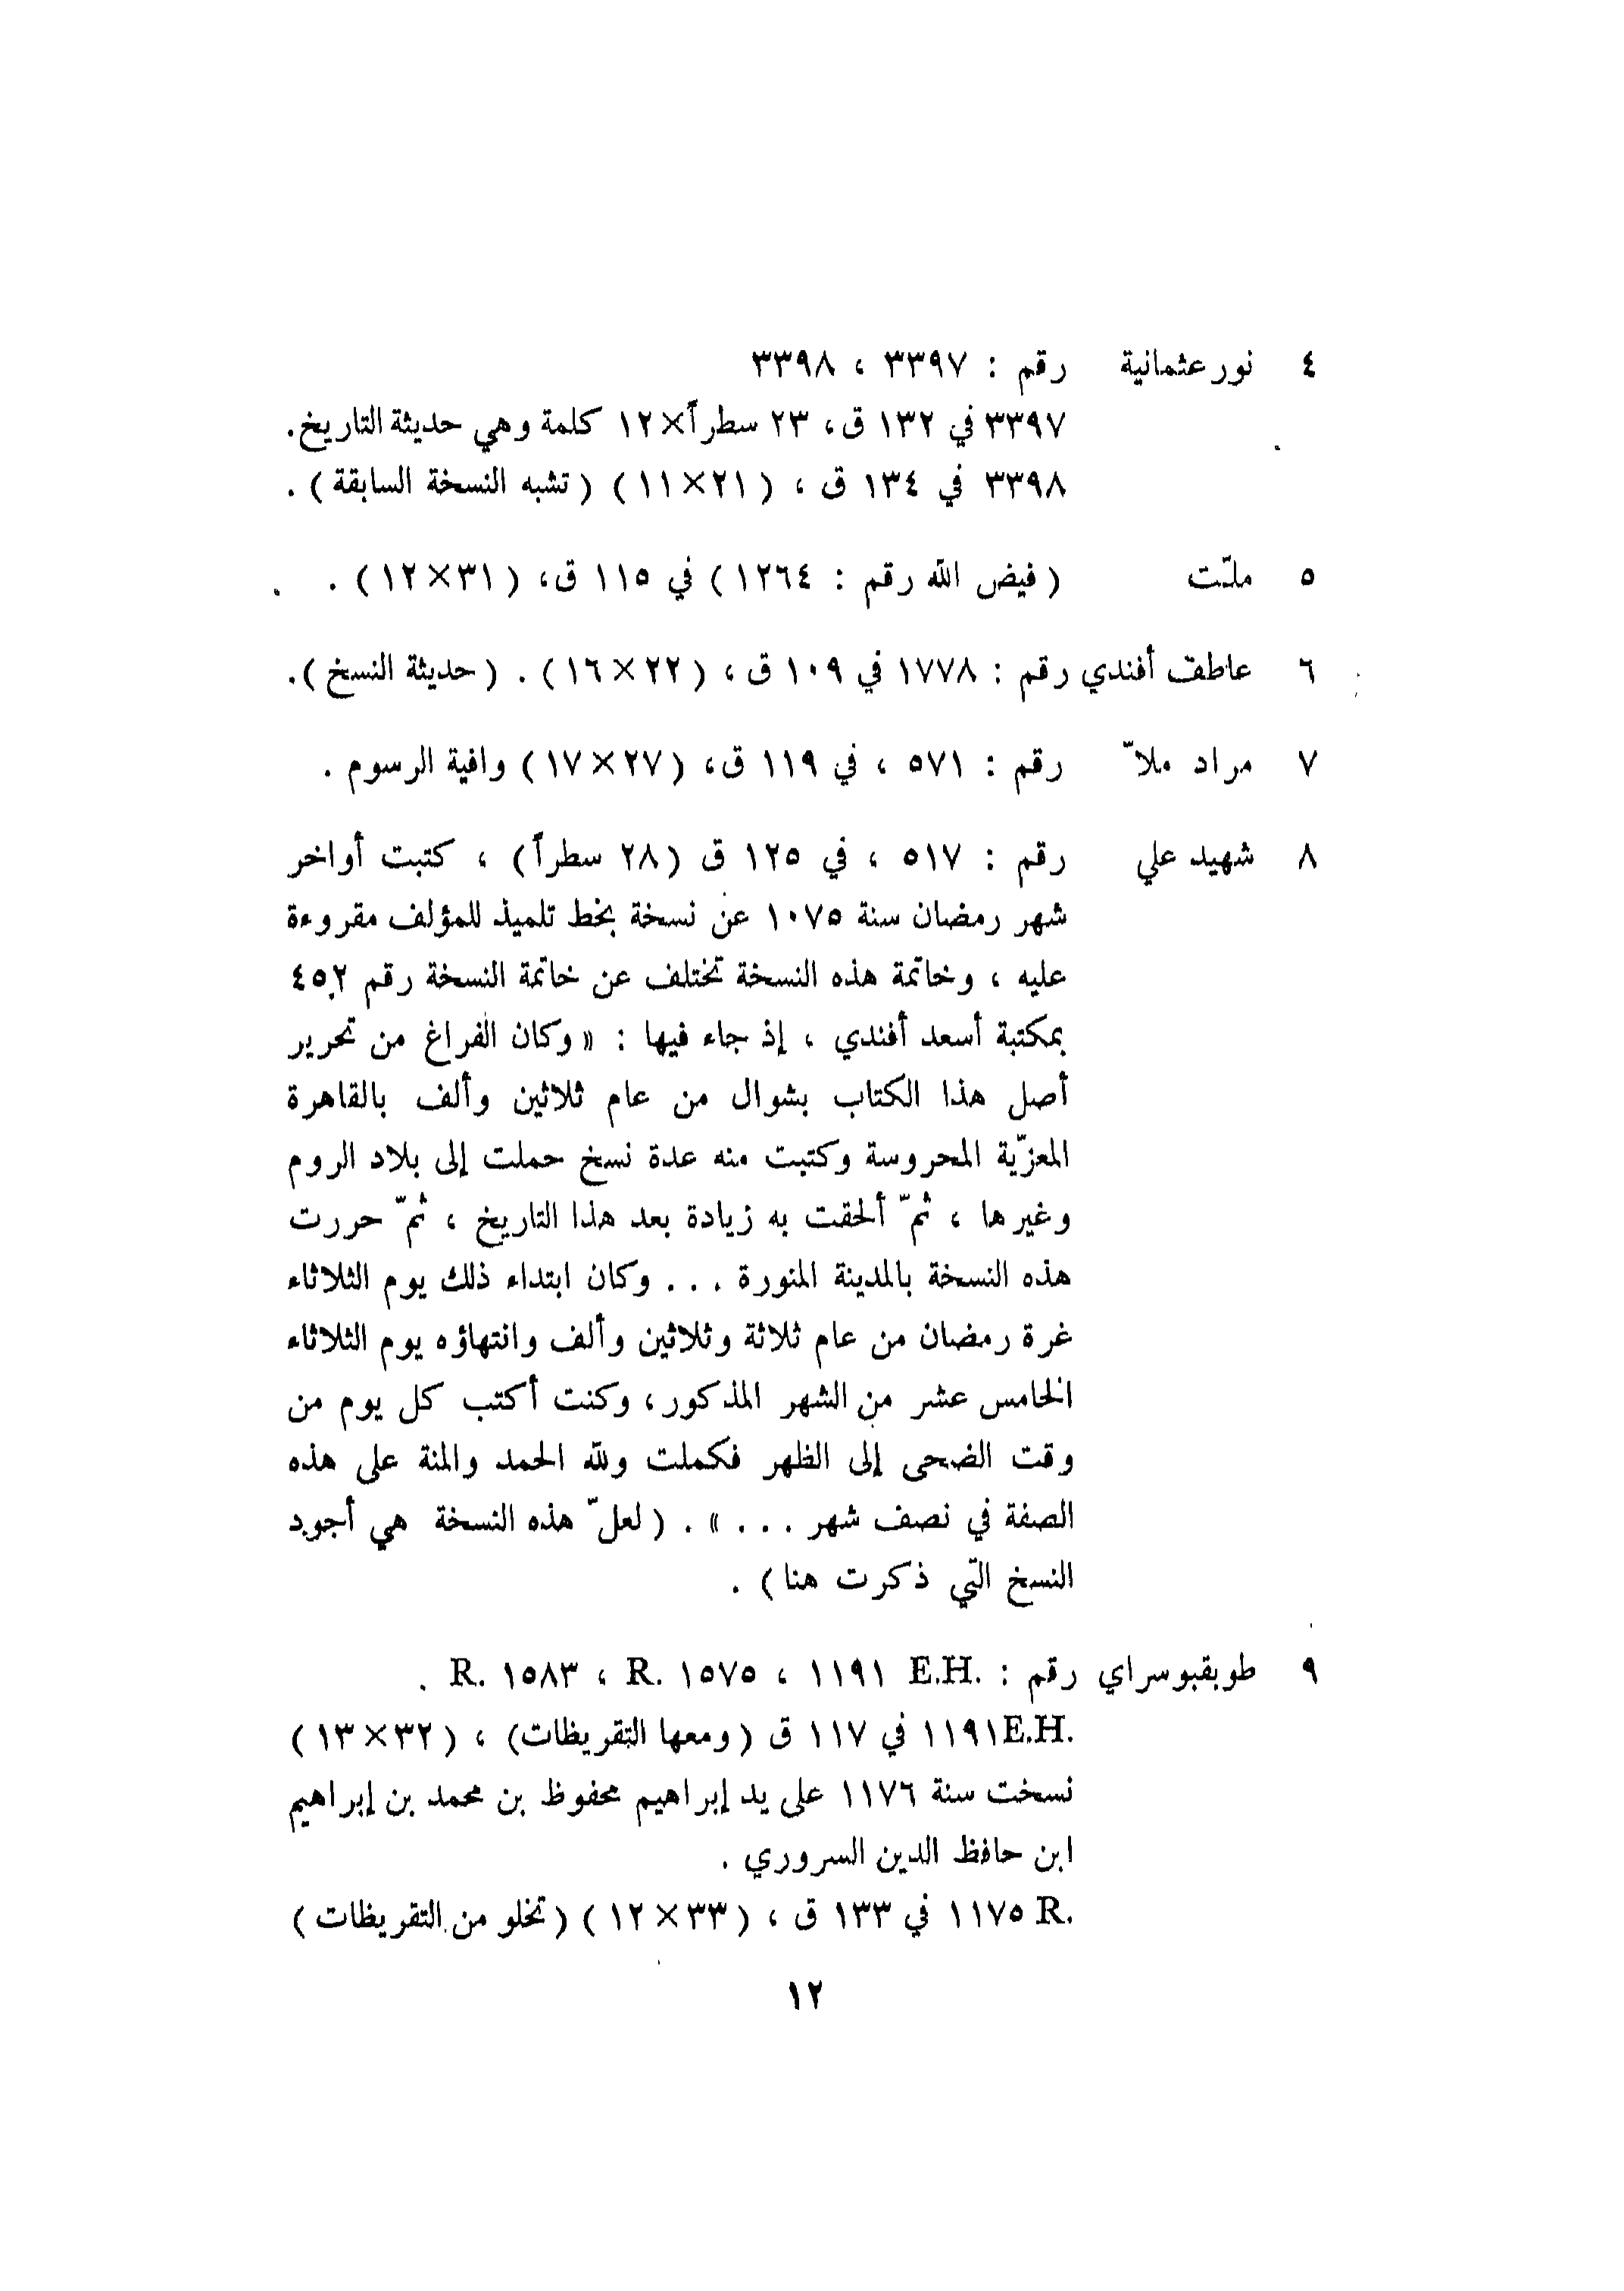 ٤ نور عثمانية رقم : ٣٣٩٧ ، ٣٣٩٨
٣٣٩٧ في ١٣٢ ق، ٢٣ سطراً×١٢ كلمة وهي حديثة التاريخ.
٣٣٩٨ في ١٣٤ ق ، (٢١×١١) (تشبه النسخة السابقة) .
٥ ملّت (فيض الله رقم : ١٢٦٤) في ١١٥ ق، (٣١×١٢) .
٦ عاطف أفندي رقم : ١٧٧٨ في ١٠٩ ق ، (٢٢×١٦) . (حديثة النسخ).
٧ مراد ملاّ رقم : ٥٧١ ، في ١١٩ ق، (٢٧×١٧) وافية الرسوم .
٨ شهيد علي رقم : ٥١٧ ، في ١٢٥ ق (٢٨ سطراً) ، كتبت أواخر
شهر رمضان سنة ١٠٧٥ عن نسخة بخط تلميذ للمؤلف مقروءة
عليه ، وخاتمة هذه النسخة تختلف عن خاتمة النسخة رقم ٤٥٢
بمكتبة أسعد أفندي ، إذ جاء فيها : « وكان الفراغ من تحرير
أصل هذا الكتاب بشوال من عام ثلاثين وألف بالقاهرة
المعزّية المحروسة وكتبت منه عدة نسخ حملت إلى بلاد الروم
وغيرها ، ثمّ ألحقت به زيادة بعد هذا التاريخ ، ثمّ حررت
هذه النسخة بالمدينة المنورة . . . وكان ابتداء ذلك يوم الثلاثاء
غرة رمضان من عام ثلاثة وثلاثين وألف وانتهاؤه يوم الثلاثاء
الخامس عشر من الشهر المذكور، وكنت أكتب كل يوم من
وقت الضحى إلى الظهر فكملت ولله الحمد والمنة على هذه
الصفة في نصف شهر . . . » . (لعلّ هذه النسخة هي أجود
النسخ التي ذكرت هنا) .
٩ طوبقبوسراي رقم : .E.H ١١٩١ ، ١٥٧٥ .R ، ١٥٨٣ .R .
.E.H١١٩١ في ١١٧ ق (ومعها التقريظات) ، (٣٢×١٣)
نسخت سنة ١١٧٦ على يد إبراهيم محفوظ بن محمد بن إبراهيم
ابن حافظ الدين السروري .
.R ١١٧٥ في ١٣٣ ق ، (٣٣×١٢) (تخلو من التقريظات)
١٢